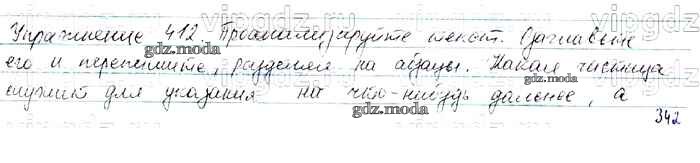 Упражнение 412. Проанализируйте текст. Озаглавьте
gdz.moda
его и перепишите, разделяя на абзацы. Какая частица
gdz.moda
служит для указания на что-нибудь дальнее, а
gdz.moda
342
vipgdz.ru